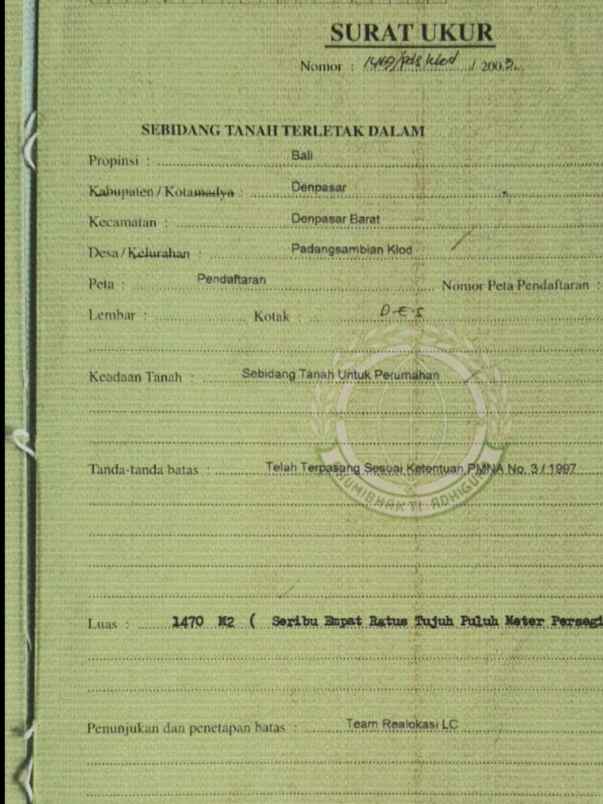 SURAT UKUR
Nomor : / 200
SEBIDANG TANAH TERLETAK DALAM
Propinsi : Bali
Kabupaten / Kotamadya : Denpasar
Kecamatan : Denpasar Barat
Desa / Kelurahan : Padangsambian Klod
Peta : Pendaftaran Nomor Peta Pendaftaran :
Lembar : Kotak : D-E-5
Keadaan Tanah : Sebidang Tanah Untuk Perumahan
Tanda-tanda batas : Telah Terpasang Sesuai Ketentuan PMNA No. 3 / 1997
BUMIBHAKTI ADHIGU
Luas : 1470 M2 ( Seribu Empat Ratus Tujuh Puluh Meter Persegi
Penunjukan dan penetapan batas : Team Realokasi LC